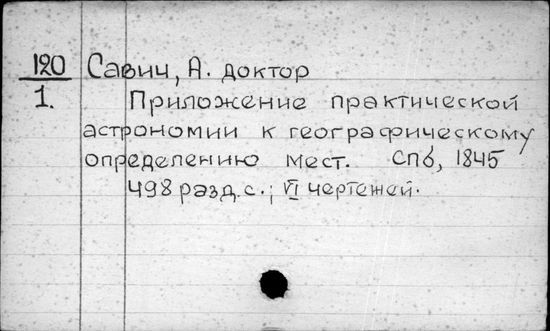 120 Савич, А. доктор
1. Приложение практической
астрономии к географическому
определению мест. Спб, 1845
498 разд. с.; VI чертежей.